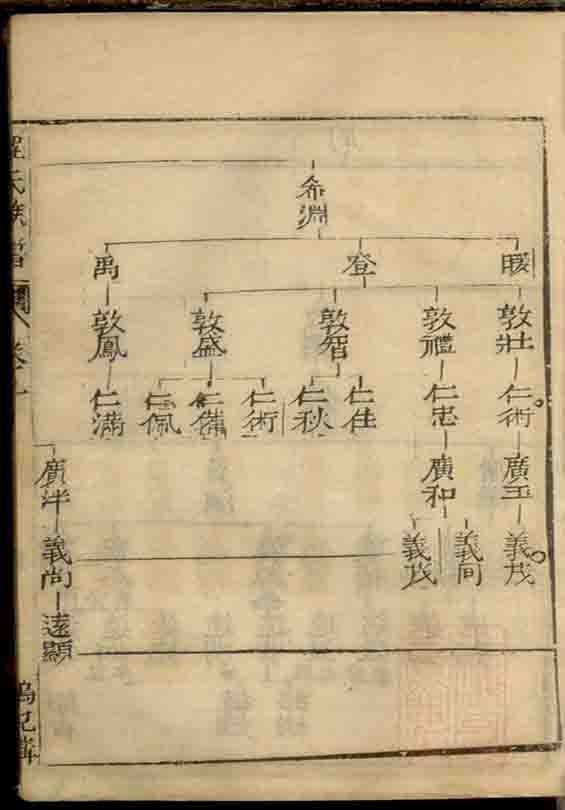 希淵
暖
登
禹
敦壯
敦禮
敦智
敦盛
敦鳳
仁術
仁忠
仁佳
仁秋
仁術
仁備
仁佩
仁滿
廣玉
廣和
廣泮
義茂
義间
義茂
義尚
遠顯
氏族譜